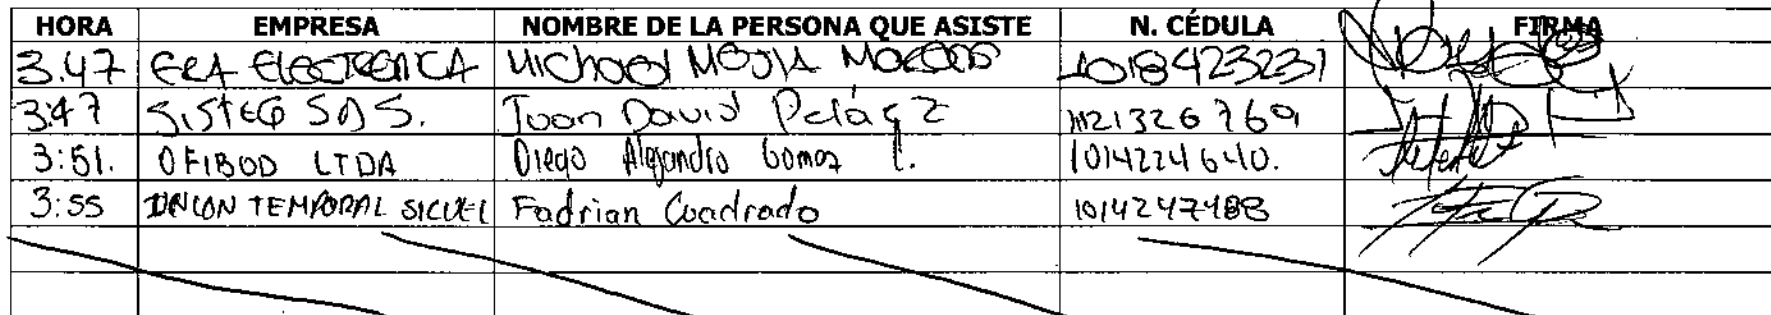 HORA EMPRESA NOMBRE DE LA PERSONA QUE ASISTE N. CÉDULA FIRMA
3.47 ERA ELECTRONICA Michael MEJIA 1018423231
3:47 SISTEQ SAS. Juan David Peláez 1121326769
3:51. OFIBOD LTDA Diego Alejandro Gomez C. 1014224640.
3:55 UNION TEMPORAL Fadrian Cuadrado 1014247488